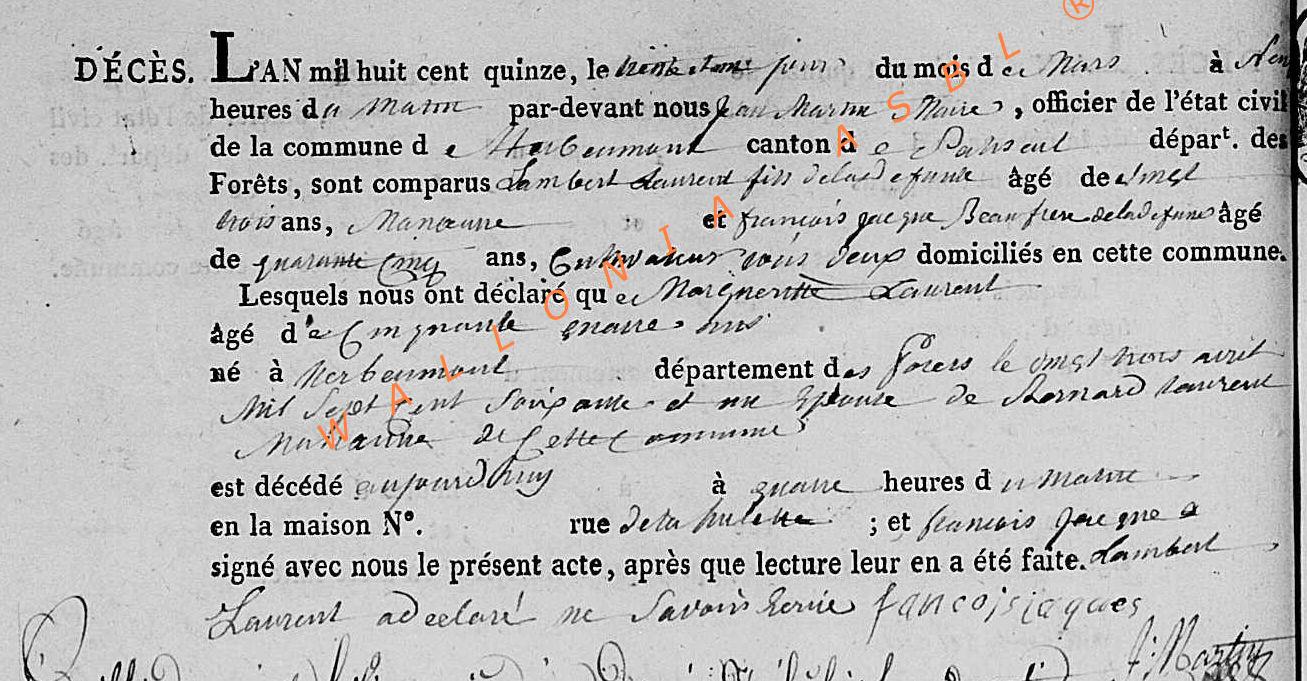 DÉCÈS. L'AN mil huit cent quinze, le trente et une jour du mois de Mars à
heures du matin par-devant nous Jean Martin Maire, officier de l'état civil
de la commune de Herbeumont canton de Paliseul départ. des
Forêts, sont comparus Lambert Laurent fils de la defunte âgé de vingt
trois ans, Manœuvre et françois jacque Beaufrere de la defunte âgé
de quarante cinq ans, Cultivateur tous deux domiciliés en cette commune.
Lesquels nous ont déclaré que Margueritte Laurent
âgé de Cinquante quatre ans
né à herbeumont département des forets le vingt trois avril
Mil Sept Cent Soixante et un Epouse de Bernard Laurent
de Cette Commune
est décédé aujourd'huy à quatre heures du matin
en la maison N°. rue de la ; et francois jacque a
signé avec nous le présent acte, après que lecture leur en a été faite. Lambert
Laurent a declaré ne Savoir Ecrire fancois jaques
J: Martin
WALLONIA ASBL ®